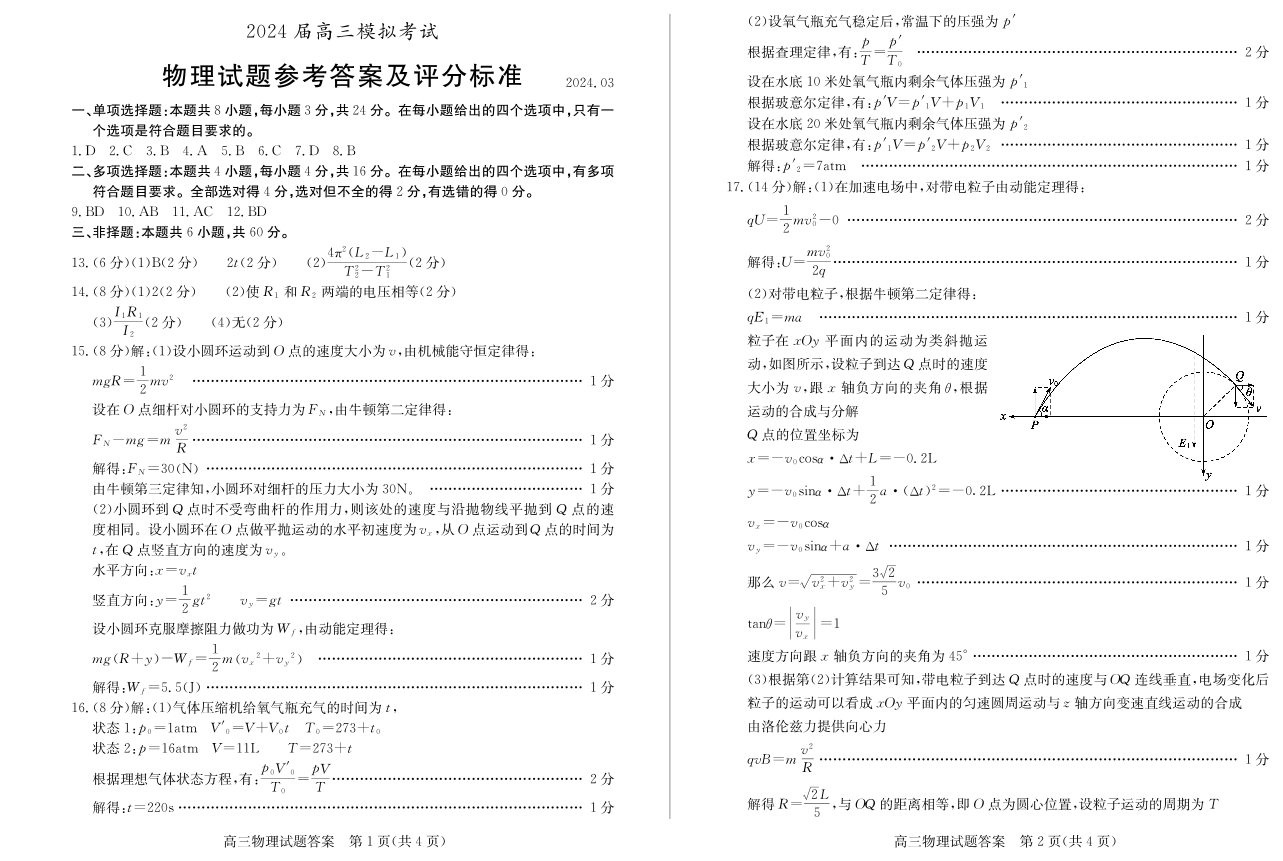 2024 届高三模拟考试
物理试题参考答案及评分标准 2024.03
一、单项选择题:本题共 8 小题,每小题 3 分,共 24 分。在每小题给出的四个选项中,只有一
个选项是符合题目要求的。
1.D 2.C 3.B 4.A 5.B 6.C 7.D 8.B
二、多项选择题:本题共 4 小题,每小题 4 分,共 16 分。在每小题给出的四个选项中,有多项
符合题目要求。全部选对得 4 分,选对但不全的得 2 分,有选错的得 0 分。
9.BD 10.AB 11.AC 12.BD
三、非择题:本题共 6 小题,共 60 分。
13.(6 分)(1)B(2 分) 2t(2 分) (2)4π²(L₂−L₁)/(T₂²−T₁²)(2 分)
14.(8 分)(1)2(2 分) (2)使 R₁ 和 R₂ 两端的电压相等(2 分)
(3)I₁R₁/I₂(2 分) (4)无(2 分)
15.(8 分)解:(1)设小圆环运动到 O 点的速度大小为 v,由机械能守恒定律得:
mgR=1/2mv² ………… 1 分
设在 O 点细杆对小圆环的支持力为 F_N,由牛顿第二定律得:
F_N−mg=m v²/R ………… 1 分
解得:F_N=30(N) ………… 1 分
由牛顿第三定律知,小圆环对细杆的压力大小为 30N。 ………… 1 分
(2)小圆环到 Q 点时不受弯曲杆的作用力,则该处的速度与沿抛物线平抛到 Q 点的速
度相同。设小圆环在 O 点做平抛运动的水平初速度为 vₓ,从 O 点运动到 Q 点的时间为
t,在 Q 点竖直方向的速度为 v_y。
水平方向:x=vₓt
竖直方向:y=1/2gt² v_y=gt ………… 2 分
设小圆环克服摩擦阻力做功为 W_f,由动能定理得:
mg(R+y)−W_f=1/2m(vₓ²+v_y²) ………… 1 分
解得:W_f=5.5(J) ………… 1 分
16.(8 分)解:(1)气体压缩机给氧气瓶充气的时间为 t,
状态 1:p₀=1atm V′₀=V+V₀t T₀=273+t₀
状态 2:p=16atm V=11L T=273+t
根据理想气体状态方程,有:p₀V′₀/T₀=pV/T ………… 2 分
解得:t=220s ………… 1 分
高三物理试题答案 第 1 页(共 4 页)
(2)设氧气瓶充气稳定后,常温下的压强为 p′
根据查理定律,有:p/T=p′/T₀ ………… 2 分
设在水底 10 米处氧气瓶内剩余气体压强为 p′₁
根据玻意尔定律,有:p′V=p′₁V+p₁V₁ ………… 1 分
设在水底 20 米处氧气瓶内剩余气体压强为 p′₂
根据玻意尔定律,有:p′₁V=p′₂V+p₂V₂ ………… 1 分
解得:p′₂=7atm ………… 1 分
17.(14 分)解:(1)在加速电场中,对带电粒子由动能定理得:
qU=1/2mv₀²−0 ………… 2 分
解得:U=mv₀²/2q ………… 1 分
(2)对带电粒子,根据牛顿第二定律得:
qE₁=ma ………… 1 分
粒子在 xOy 平面内的运动为类斜抛运
动,如图所示,设粒子到达 Q 点时的速度
大小为 v,跟 x 轴负方向的夹角 θ,根据
运动的合成与分解
Q 点的位置坐标为
x=−v₀cosα·Δt+L=−0.2L
y=−v₀sinα·Δt+1/2a·(Δt)²=−0.2L ………… 1 分
vₓ=−v₀cosα
v_y=−v₀sinα+a·Δt ………… 1 分
那么 v=√(vₓ²+v_y²)=3√2/5 v₀ ………… 1 分
tanθ=|v_y/vₓ|=1
速度方向跟 x 轴负方向的夹角为 45° ………… 1 分
(3)根据第(2)计算结果可知,带电粒子到达 Q 点时的速度与 OQ 连线垂直,电场变化后
粒子的运动可以看成 xOy 平面内的匀速圆周运动与 z 轴方向变速直线运动的合成
由洛伦兹力提供向心力
qvB=m v²/R ………… 1 分
解得 R=√2L/5,与 OQ 的距离相等,即 O 点为圆心位置,设粒子运动的周期为 T
x
P
v₀
α
Q
θ
v
O
E₁
y
高三物理试题答案 第 2 页(共 4 页)